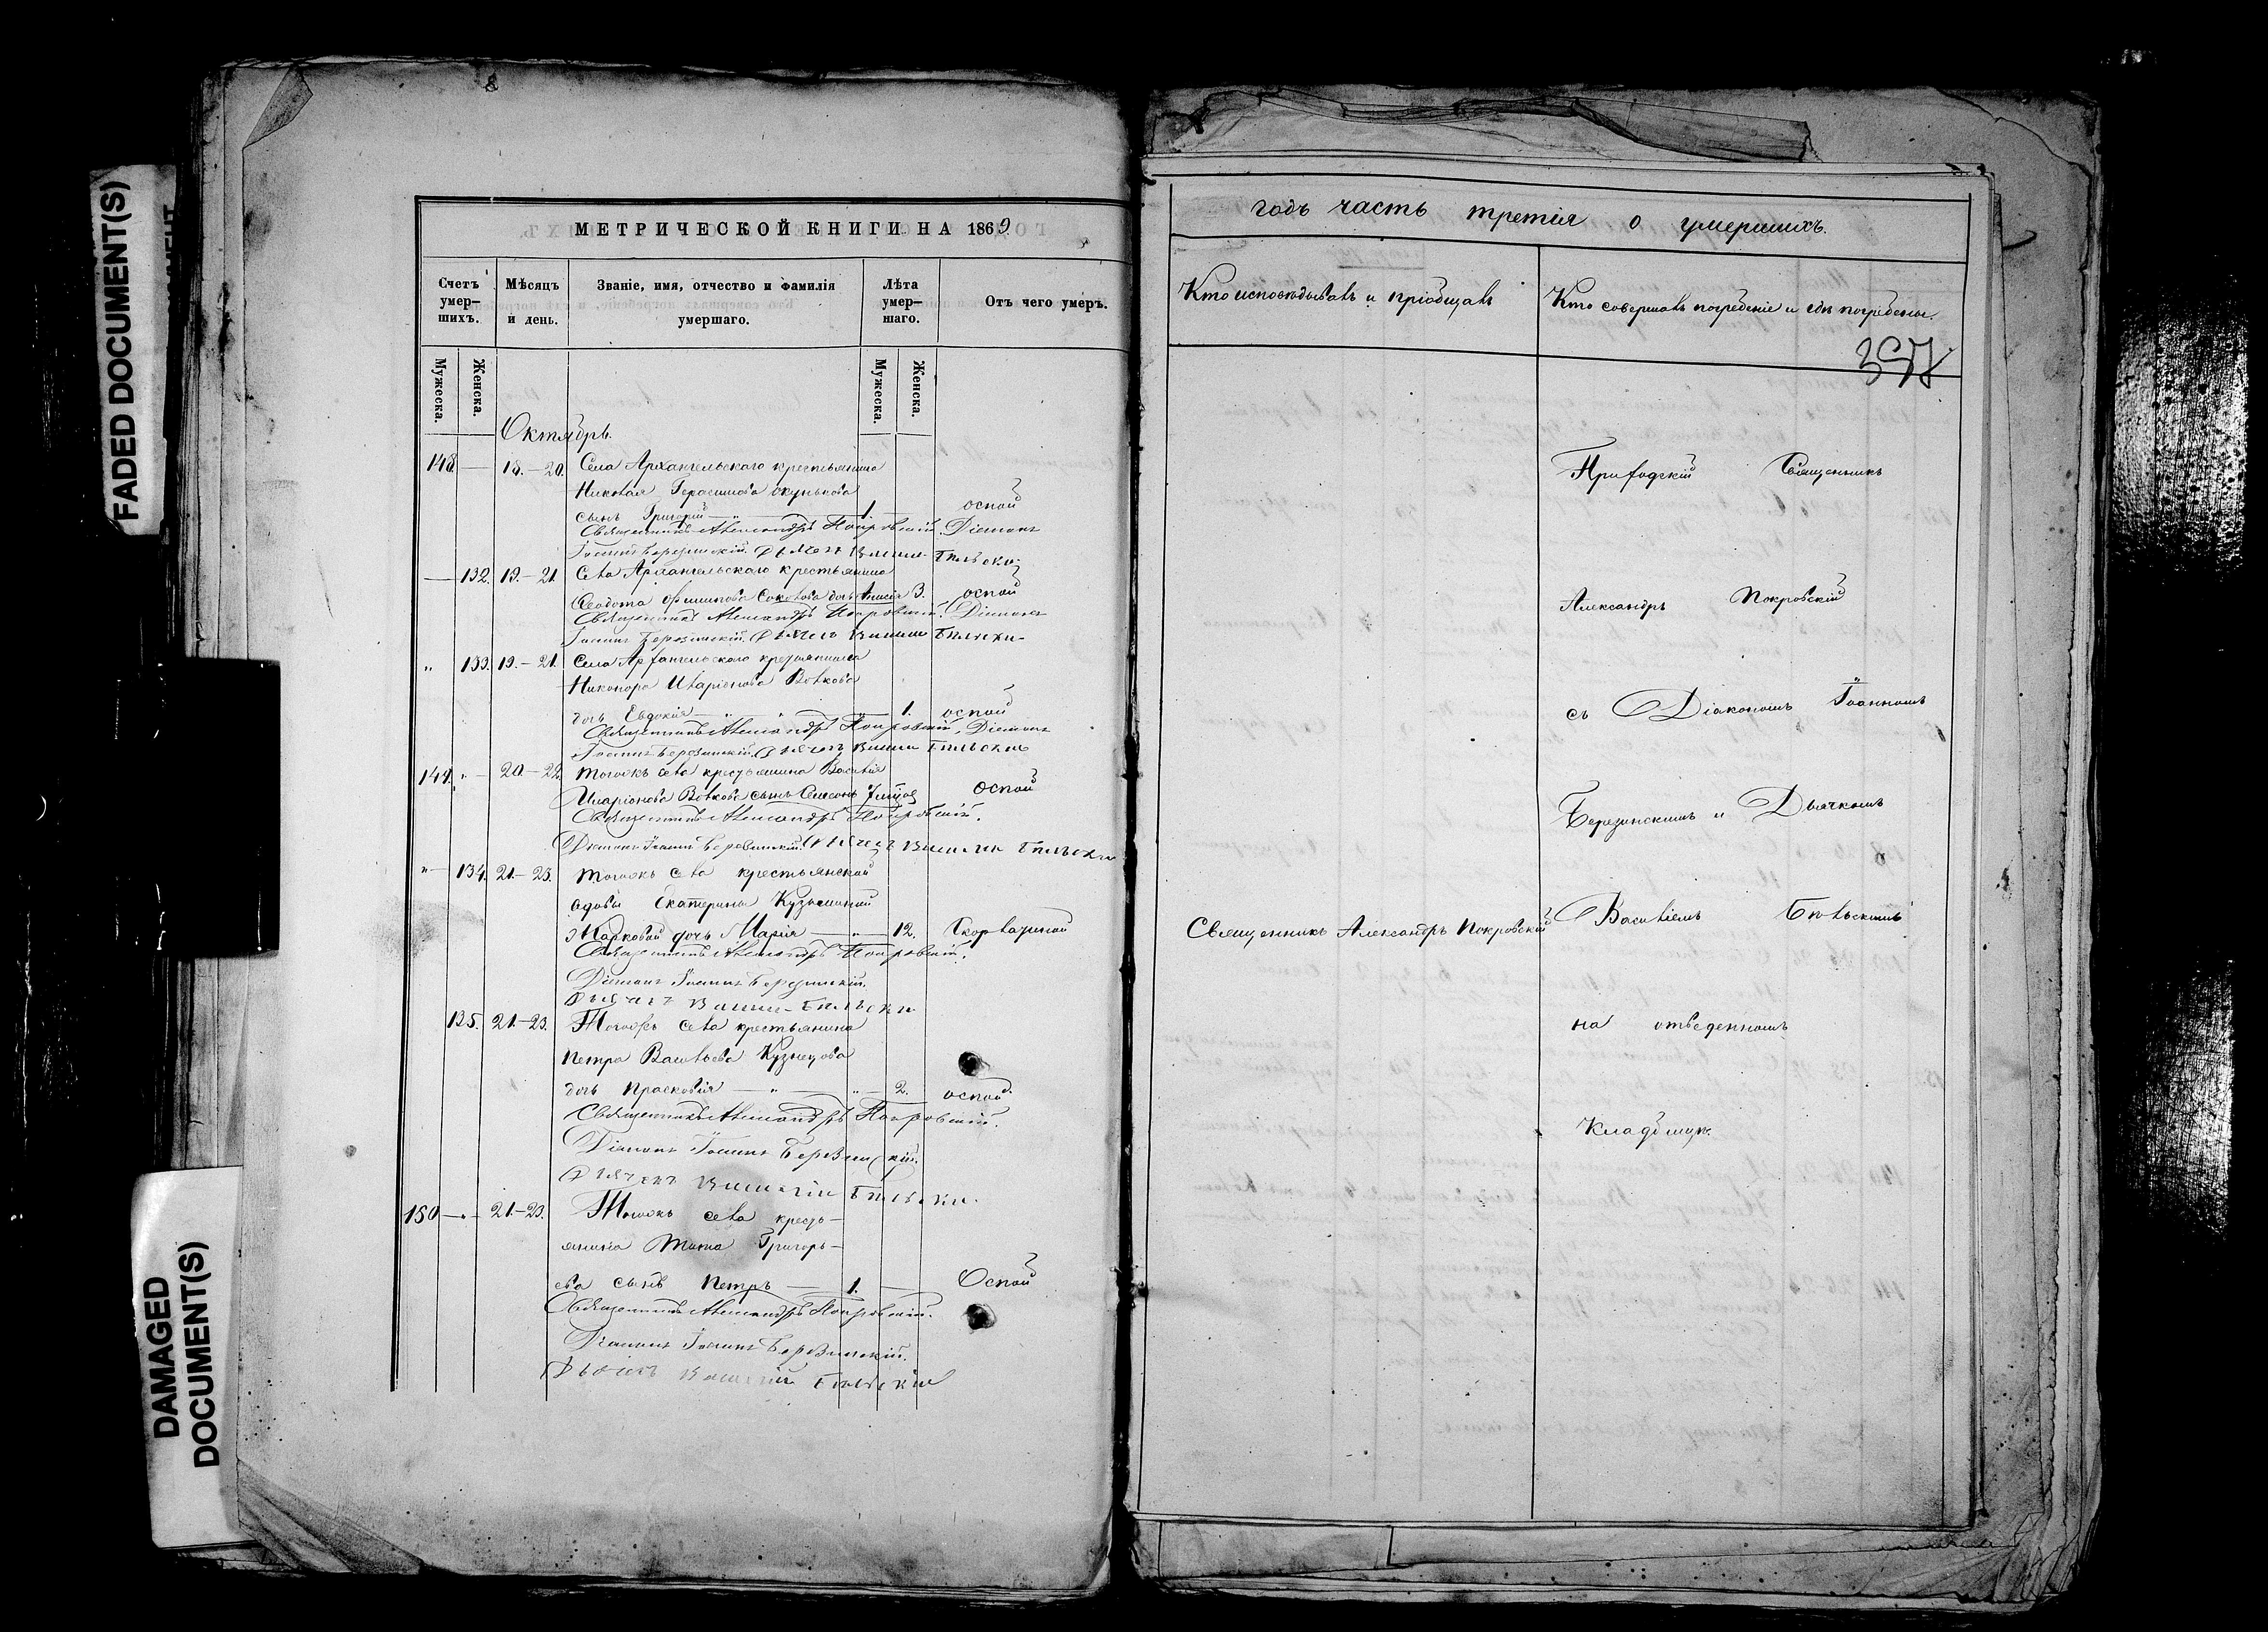 FADED DOCUMENT(S)
DAMAGED
DOCUMENT(S)
МЕТРИЧЕСКОЙ КНИГИ НА 1869
Счетъ умер-шихъ.
Мѣсяцъ и день.
Званіе, имя, отчество и фамилія умершаго.
Лѣта умер-шаго.
Отъ чего умеръ.
Мужеска.
Женска.
Мужеска.
Женска.
Октябрь.
148 18.-20. Села Архангельскаго крестьянина
Николая Герасимова Окунькова
сынъ Григорій 1. оспой
Священникъ Александръ Покровскій. Діаконъ
Іоаннъ Березинскій. Дьячекъ Василій Бѣльскій
132. 19.-21. Села Архангельскаго крестьянина
Ѳеодота Филипова Соколова дочь Анисія 3. оспой
Священникъ Александръ Покровскій. Діаконъ
Іоаннъ Березинскій. Дьячекъ Василій Бѣльскій
" 133. 19.-21. Села Архангельскаго крестьянина
Никонора Иларіонова Волкова
дочь Евдокія 1. оспой
Священникъ Александръ Покровскій, Діаконъ
Іоаннъ Березинскій. Дьячекъ Василій Бѣльскій
149 " 20-22. Тогожъ села крестьянина Василія
Иларіонова Волкова сынъ Симеонъ оспой
Священникъ Александръ Покровскій.
Діаконъ Іоаннъ Березинскій. Дьячекъ Василій Бѣльскій
" 134. 21.-23. Тогожъ села крестьянской
вдовы Екатерины Кузьминой
Жарковой дочь Марія 12. Скорлатиной
Священникъ Александръ Покровскій.
Діаконъ Іоаннъ Березинскій.
Дьячекъ Василій Бѣльскій
135. 21.-23. Тогожъ села крестьянина
Петра Васильева Кузнецова
дочь Прасковія 2. оспой
Священникъ Александръ Покровскій.
Діаконъ Іоаннъ Березинскій.
Дьячекъ Василій Бѣльскій.
150 " 21.-23. Тогожъ села кресть-
янина Тита Григорь-
ева сынъ Петръ 1. Оспой
Священникъ Александръ Покровскій.
Діаконъ Іоаннъ Березинскій.
Дьячекъ Василій Бѣльскій
годъ часть третія о умершихъ.
Кто исповѣдывалъ и пріобщалъ
Кто совершалъ погребеніе и гдѣ погребены.
357
Приходскій Священникъ
Александръ Покровскій
съ Діакономъ Іоанномъ
Березинскимъ и Дьячкомъ
Священникъ Александръ Покровскій
Василіемъ Бѣльскимъ
на отведенномъ
Кладбищѣ.